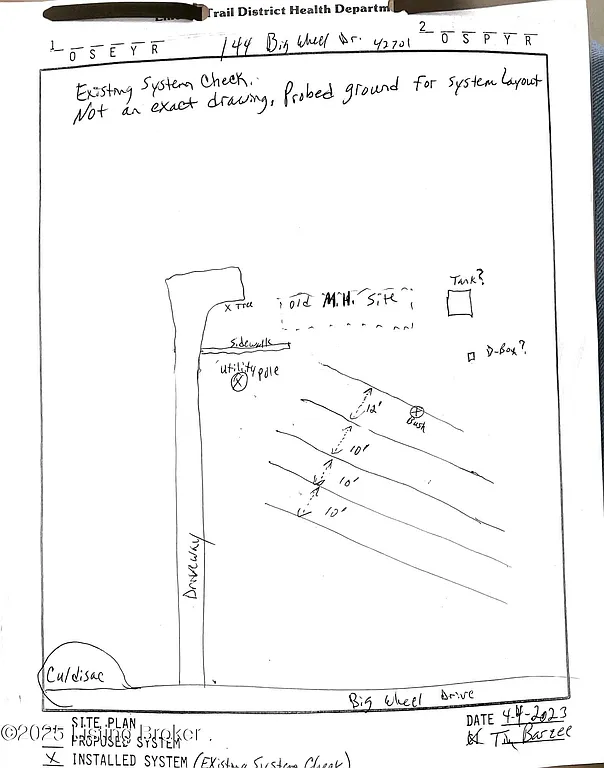 Trail District Health Departm
1 O S E Y R 144 Big Wheel Dr. 42701 2 O S P Y R
Existing System Check.
Not an exact drawing, Probed ground for system Layout
Tank?
X Tree
old M.H. Site
Sidewalk
D-Box?
Utility pole
X
12'
X
Bush
10'
10'
10'
Driveway
Culdisac
Big Wheel Drive
SITE PLAN
DATE 4-4-2023
©2025 Listing Broker
PROPOSED SYSTEM
X INSTALLED SYSTEM (Existing System Check)